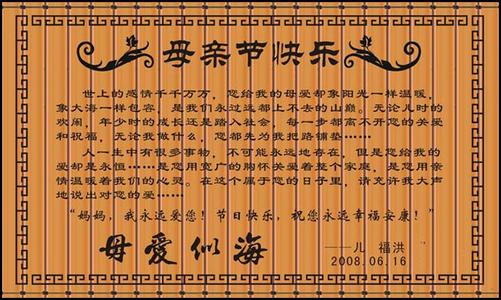 母亲节快乐
世上的感情千千万万，您给我的母爱却象阳光一样温暖，
象大海一样包容，是我们永过远都上不去的山巅。无论儿时的
欢闹，年少时的成长还是踏入社会，每一步都离不开您的关爱
和祝福，无论我做什么，您都先为我把路铺垫……
人一生中有很多事物，不可能永远地存在，但是您给我的
爱却是永恒……是您用宽广的胸怀关爱着整个家庭，是您用亲
情温暖着我们的心灵。在这个属于您的日子里，请充许我大声
地说出对您的爱……
“妈妈，我永远爱您！节日快乐，祝您永远幸福安康！”
母爱似海
——儿 福洪
2008.06.16